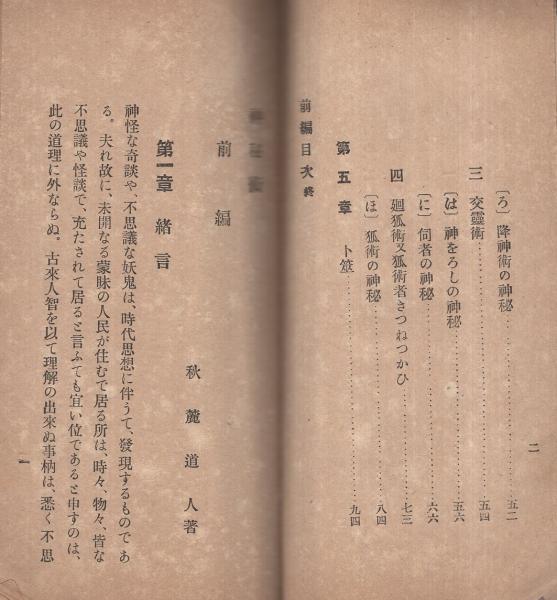 〔ろ〕降神術の神秘……五二
三 交靈術……五四
〔は〕神をろしの神秘……五六
〔に〕伺者の神秘……六六
四 廻狐術又狐術者きつねつかひ……七三
〔ほ〕狐術の神秘……八四
第五章 卜筮……九四
前編目次終
二
前編
秋麓道人著
第一章 緒言
神怪な奇談や、不思議な妖鬼は、時代思想に伴うて、發現するものであ
る。夫れ故に、未開なる蒙昧の人民が住むで居る所は、時々、物々、皆な
不思議や怪談で、充たされて居ると言ふても宜い位であると申すのは、
此の道理に外ならぬ。古來人智を以て理解の出來ぬ事柄は、悉く不思
一